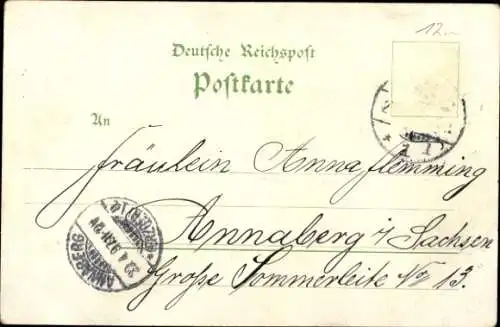 12.-
Deutsche Reichspost
Postkarte
An
Fräulein Anna Flemming
Annaberg i/Sachsen
Große Sommerleite No 13.
ANNABERG